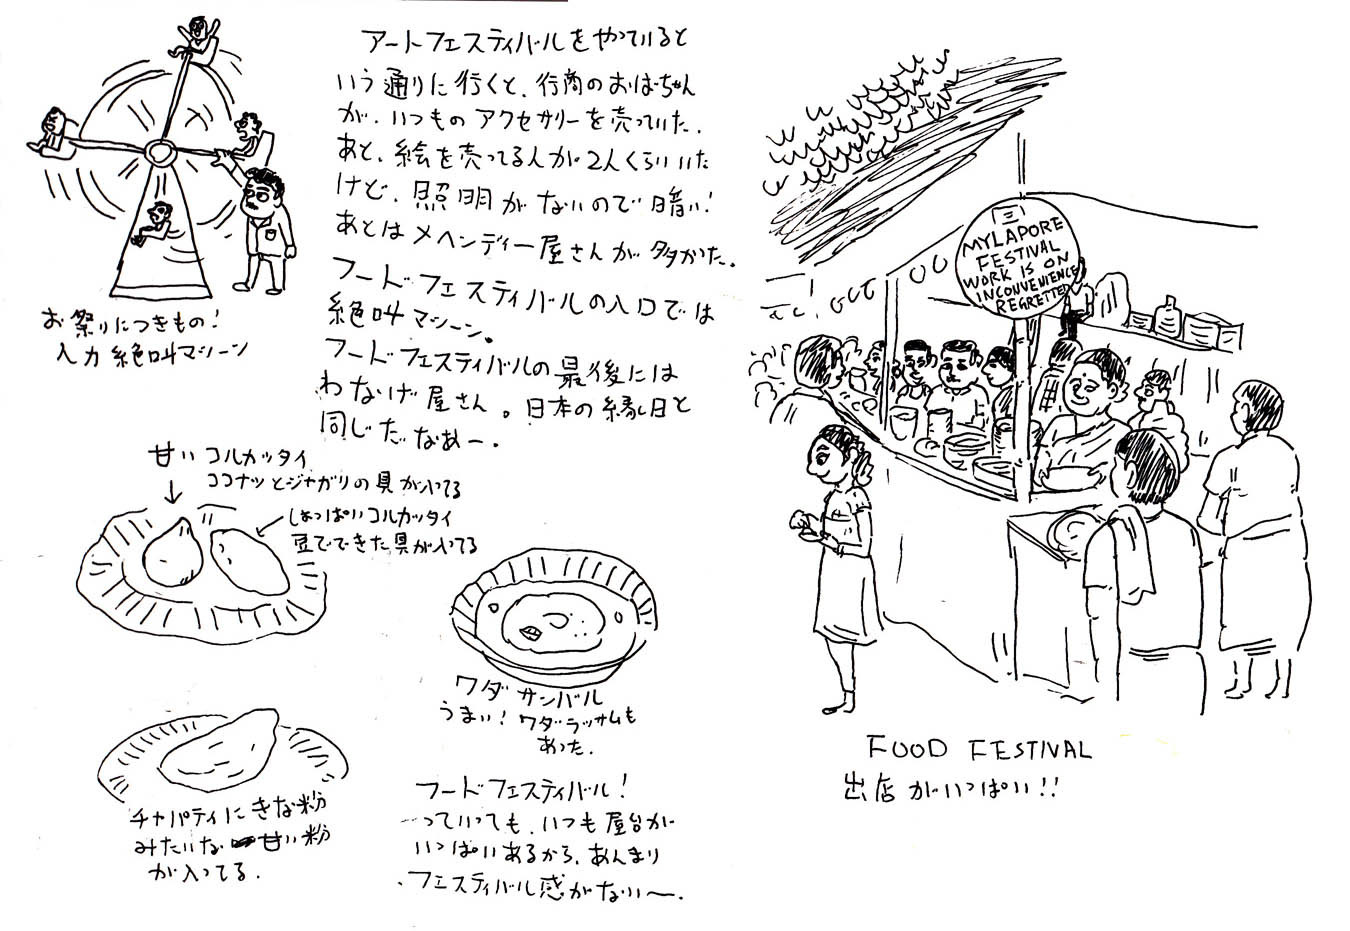 アートフェスティバルをやっていると
いう通りに行くと、行商のおばちゃん
が、いつものアクセサリーを売っていた。
あと、絵を売ってる人が2人くらいいた
けど、照明がないので暗い!
あとはメヘンディー屋さんが多かった。
フードフェスティバルの入口では
絶叫マシーン。
フードフェスティバルの最後には
わなげ屋さん。日本の縁日と
同じだなあー。
お祭りにつきもの!
人力絶叫マシーン
甘いコルカッタイ
ココナッツとジャガリの具が入ってる
しょっぱいコルカッタイ
豆でできた具が入ってる
ワダサンバル
うまい! ワダラッサムも
あった.
チャパティにきな粉
みたいな甘い粉
が入ってる.
フードフェスティバル!
っていっても、いつも屋台が
いっぱいあるから、あんまり
フェスティバル感がない〜.
三
MYLAPORE
FESTIVAL
WORK IS ON
INCONVENIENCE
REGRETTED
FOOD FESTIVAL
出店がいっぱい!!